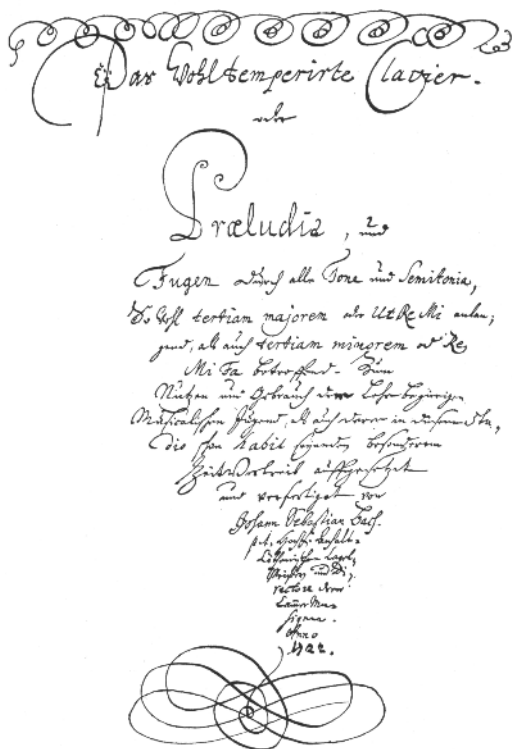 Das Wohltemperirte Clavier.
oder
Præludia, und
Fugen durch alle Tone und Semitonia,
So wohl tertiam majorem oder Ut Re Mi anlan;
gend, als auch tertiam minorem oder Re
Mi Fa betreffend. Zum
Nutzen und Gebrauch der Lehr-begierigen
Musicalischen Jugend, als auch derer in diesem stu,
dio schon habil seyenden besonderem
ZeitVertreib auffgesetzet
und verfertiget von
Johann Sebastian Bach.
p. t. Hochfürstl. Anhalt-
Cöthenischen Capel,
Meistern und Di,
rectore derer
Cammer Mu-
siquen.
Anno
1722.